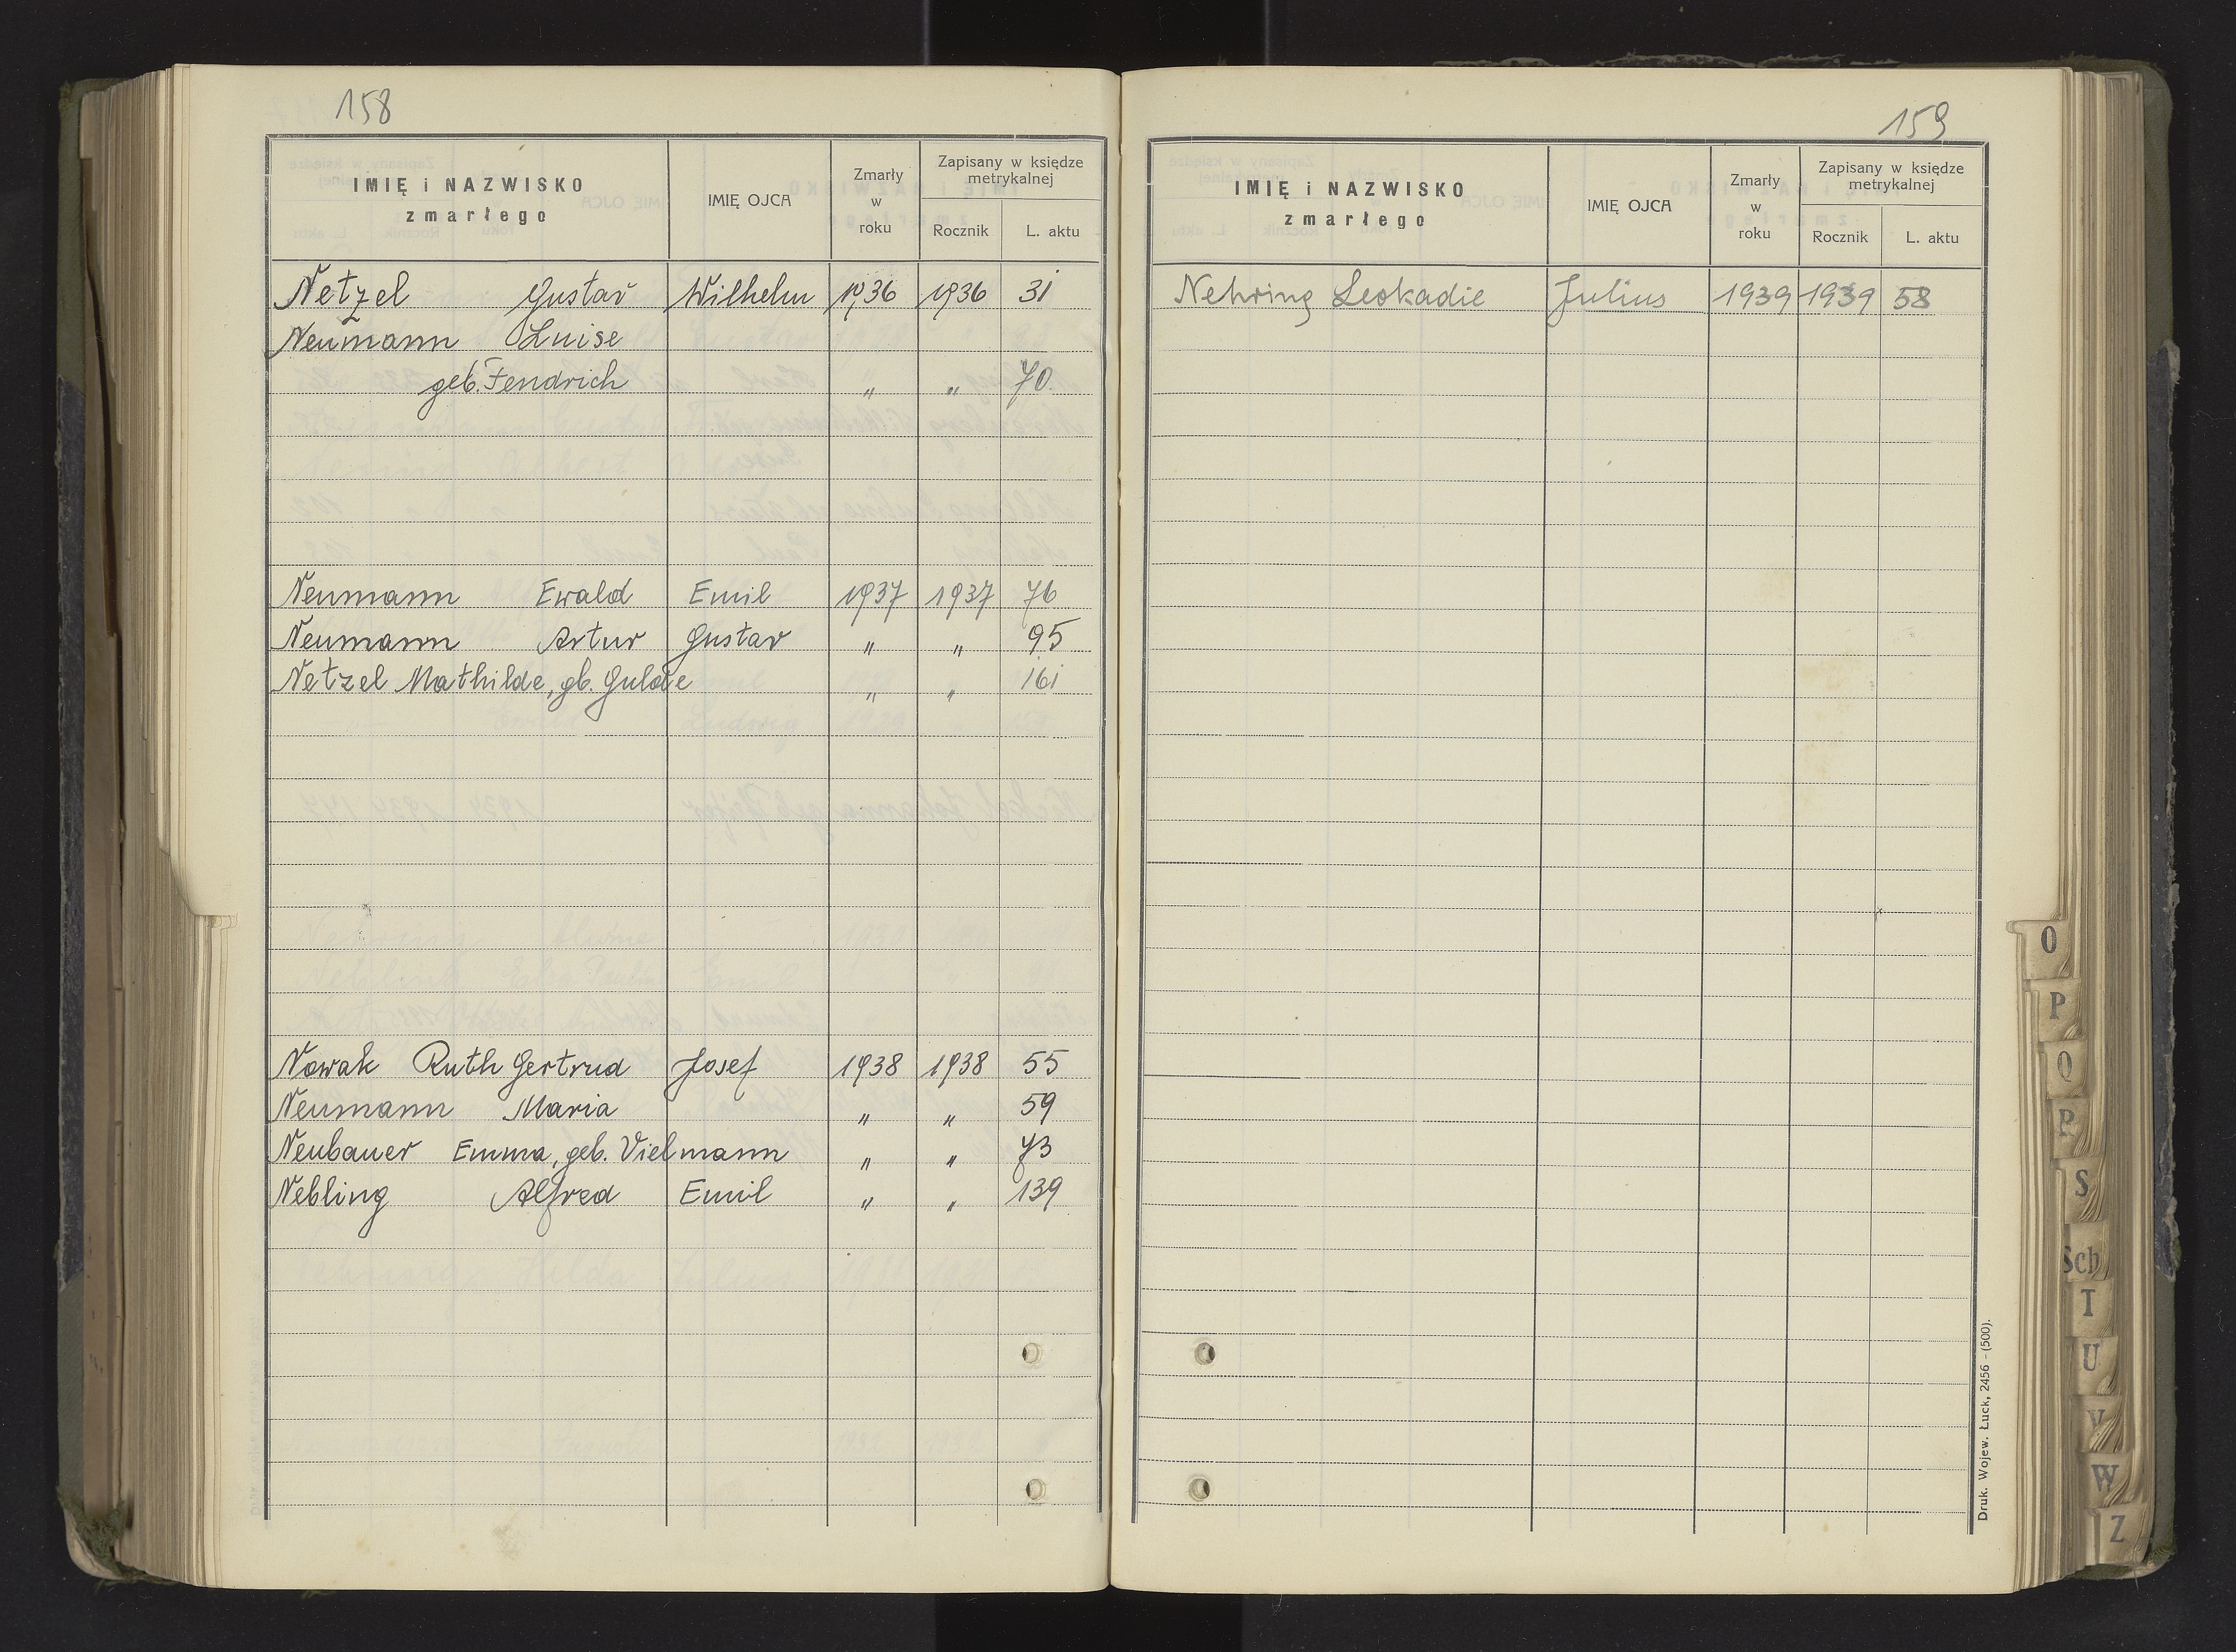 158
IMIĘ i NAZWISKO
zmarłego
IMIĘ OJCA
Zmarły
w
roku
Zapisany w księdze
metrykalnej
Rocznik
L. aktu
Netzel Gustav Wilhelm 1936 1936 31
Neumann Luise
geb. Fendrich " " 70.
Neumann Ewald Emil 1937 1937 76
Neumann Artur Gustav " " 95
Netzel Mathilde, gb. Gulde " " 161
Nowak Ruth Gertrud Josef 1938 1938 55
Neumann Maria " " 59
Neubauer Emma, geb. Vielmann " " 73
Nebling Alfred Emil " " 139
159
IMIĘ i NAZWISKO
zmarłego
IMIĘ OJCA
Zmarły
w
roku
Zapisany w księdze
metrykalnej
Rocznik
L. aktu
Nehring Leokadie Julius 1939 1939 58
Druk. Wojew. Łuck, 2456 - (500).
O
P
Q
R
S
Sch
T
U
V
W
Z